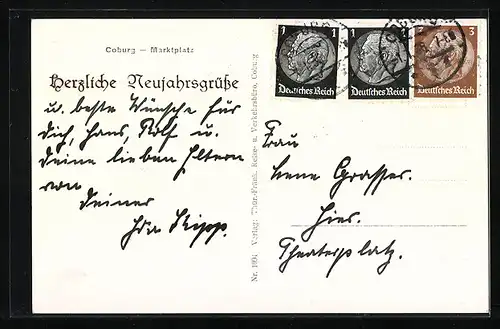 Coburg — Marktplatz
Herzliche Neujahrsgrüße
u. beste Wünsche für
Dich, Hans, Rolf u.
Deine lieben Eltern
von
Deiner
Kipp.
Nr. 1091 Verlag: Thür.-Fränk. Reise- u. Verkehrsbüro, Coburg
1 1
Deutsches Reich
1
Deutsches Reich
3
Deutsches Reich
Frau
Lene Grasser.
Hier.
Theaterplatz.